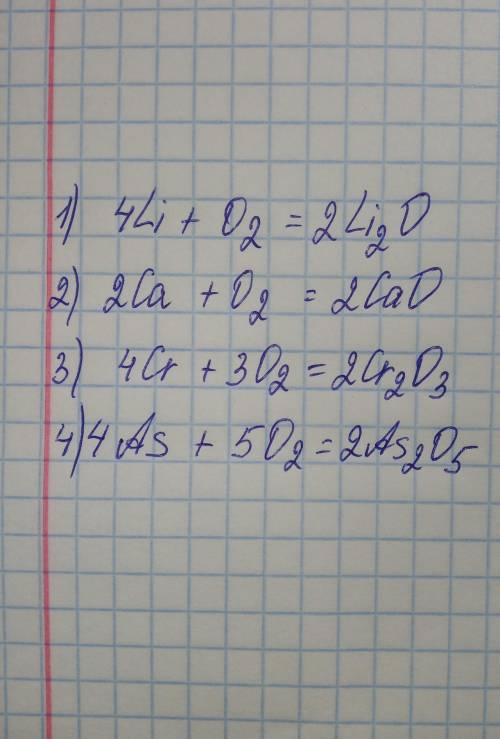 1) 4Li + O₂ = 2Li₂O
2) 2Ca + O₂ = 2CaO
3) 4Cr + 3O₂ = 2Cr₂O₃
4) 4As + 5O₂ = 2As₂O₅